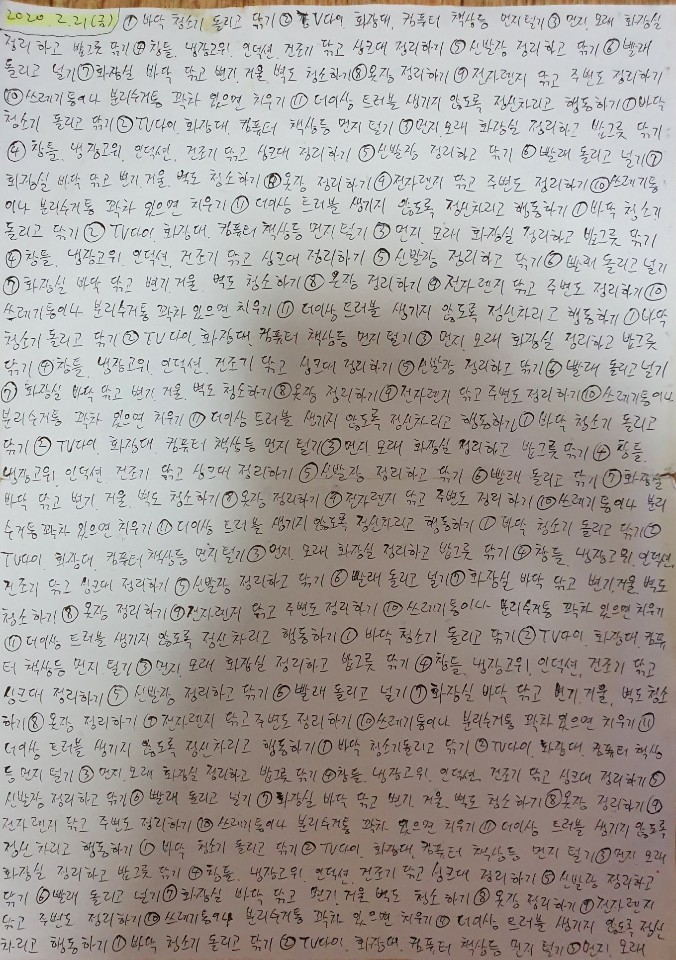 2020 2.21(금) ① 바닥 청소기 돌리고 닦기 ② TV다이, 화장대, 컴퓨터 책상등 먼지털기 ③ 먼지, 모래 화장실
정리하고 밥그릇 닦기 ④ 창틀, 냉장고위, 인덕션, 건조기 닦고 싱크대 정리하기 ⑤ 신발장 정리하고 닦기 ⑥ 빨래
돌리고 널기 ⑦ 화장실 바닥 닦고 변기, 거울, 벽도 청소하기 ⑧ 옷장 정리하기 ⑨ 전자렌지 닦고 주변도 정리하기
⑩ 쓰레기통이나 분리수거통 꽉차 있으면 치우기 ⑪ 더이상 트러블 생기지 않도록 정신차리고 행동하기 ① 바닥
청소기 돌리고 닦기 ② TV다이, 화장대, 컴퓨터 책상등 먼지 털기 ③ 먼지 모래 화장실 정리하고 밥그릇 닦기
④ 창틀, 냉장고위, 인덕션, 건조기 닦고 싱크대 정리하기 ⑤ 신발장 정리하고 닦기 ⑥ 빨래 돌리고 널기 ⑦
화장실 바닥 닦고 변기, 거울, 벽도 청소하기 ⑧ 옷장 정리하기 ⑨ 전자렌지 닦고 주변도 정리하기 ⑩ 쓰레기통
이나 분리수거통 꽉차 있으면 치우기 ⑪ 더이상 트러블 생기지 않도록 정신차리고 행동하기 ① 바닥 청소기
돌리고 닦기 ② TV다이, 화장대, 컴퓨터 책상등 먼지털기 ③ 먼지, 모래 화장실 정리하고 밥그릇 닦기
④ 창틀, 냉장고위, 인덕션, 건조기 닦고 싱크대 정리하기 ⑤ 신발장 정리하고 닦기 ⑥ 빨래 돌리고 널기
⑦ 화장실 바닥 닦고 변기, 거울, 벽도 청소하기 ⑧ 옷장 정리하기 ⑨ 전자렌지 닦고 주변도 정리하기 ⑩
쓰레기통이나 분리수거통 꽉차 있으면 치우기 ⑪ 더이상 트러블 생기지 않도록 정신차리고 행동하기 ① 바닥
청소기 돌리고 닦기 ② TV다이, 화장대, 컴퓨터 책상등 먼지털기 ③ 먼지, 모래 화장실 정리하고 밥그릇
닦기 ④ 창틀, 냉장고위, 인덕션, 건조기 닦고 싱크대 정리하기 ⑤ 신발장 정리하고 닦기 ⑥ 빨래 돌리고 널기
⑦ 화장실 바닥 닦고 변기, 거울, 벽도 청소하기 ⑧ 옷장 정리하기 ⑨ 전자렌지 닦고 주변도 정리하기 ⑩ 쓰레기통이나
분리수거통 꽉차 있으면 치우기 ⑪ 더이상 트러블 생기지 않도록 정신차리고 행동하기 ① 바닥 청소기 돌리고
닦기 ② TV다이, 화장대, 컴퓨터 책상등 먼지 털기 ③ 먼지, 모래 화장실 정리하고 밥그릇 닦기 ④ 창틀,
냉장고위, 인덕션, 건조기 닦고 싱크대 정리하기 ⑤ 신발장 정리하고 닦기 ⑥ 빨래 돌리고 닦기 ⑦ 화장실
바닥 닦고 변기, 거울, 벽도 청소하기 ⑧ 옷장 정리하기 ⑨ 전자렌지 닦고 주변도 정리하기 ⑩ 쓰레기통이나 분리
수거통 꽉차 있으면 치우기 ⑪ 더이상 트러블 생기지 않도록 정신차리고 행동하기 ① 바닥 청소기 돌리고 닦기 ②
TV다이, 화장대, 컴퓨터 책상등 먼지털기 ③ 먼지, 모래 화장실 정리하고 밥그릇 닦기 ④ 창틀, 냉장고위, 인덕션,
건조기 닦고 싱크대 정리하기 ⑤ 신발장 정리하고 닦기 ⑥ 빨래 돌리고 널기 ⑦ 화장실 바닥 닦고 변기, 거울, 벽도
청소하기 ⑧ 옷장 정리하기 ⑨ 전자렌지 닦고 주변도 정리하기 ⑩ 쓰레기통이나 분리수거통 꽉차 있으면 치우기
⑪ 더이상 트러블 생기지 않도록 정신차리고 행동하기 ① 바닥 청소기 돌리고 닦기 ② TV다이, 화장대, 컴퓨
터 책상등 먼지 털기 ③ 먼지, 모래 화장실 정리하고 밥그릇 닦기 ④ 창틀, 냉장고위, 인덕션, 건조기 닦고
싱크대 정리하기 ⑤ 신발장 정리하고 닦기 ⑥ 빨래 돌리고 널기 ⑦ 화장실 바닥 닦고 변기, 거울, 벽도 청소
하기 ⑧ 옷장 정리하기 ⑨ 전자렌지 닦고 주변도 정리하기 ⑩ 쓰레기통이나 분리수거통 꽉차 있으면 치우기 ⑪
더이상 트러블 생기지 않도록 정신차리고 행동하기 ① 바닥 청소기돌리고 닦기 ② TV다이, 화장대, 컴퓨터 책상
등 먼지 털기 ③ 먼지, 모래 화장실 정리하고 밥그릇 닦기 ④ 창틀, 냉장고위, 인덕션, 건조기 닦고 싱크대 정리하기 ⑤
신발장 정리하고 닦기 ⑥ 빨래 돌리고 널기 ⑦ 화장실 바닥 닦고 변기, 거울, 벽도 청소하기 ⑧ 옷장 정리하기 ⑨
전자렌지 닦고 주변도 정리하기 ⑩ 쓰레기통이나 분리수거통 꽉차 있으면 치우기 ⑪ 더이상 트러블 생기지 않도록
정신차리고 행동하기 ① 바닥 청소기 돌리고 닦기 ② TV다이, 화장대, 컴퓨터 책상등 먼지 털기 ③ 먼지 모래
화장실 정리하고 밥그릇 닦기 ④ 창틀, 냉장고위, 인덕션, 건조기 닦고 싱크대 정리하기 ⑤ 신발장 정리하고
닦기 ⑥ 빨래 돌리고 널기 ⑦ 화장실 바닥 닦고 변기, 거울, 벽도 청소하기 ⑧ 옷장 정리하기 ⑨ 전자렌지
닦고 주변도 정리하기 ⑩ 쓰레기통이나 분리수거통 꽉차 있으면 치우기 ⑪ 더이상 트러블 생기지 않도록 정신
차리고 행동하기 ① 바닥 청소기 돌리고 닦기 ② TV다이, 화장대, 컴퓨터 책상등 먼지 털기 ③ 먼지, 모래